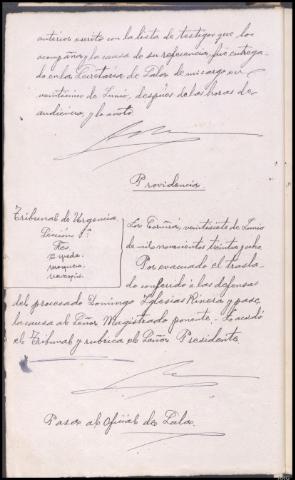 anterior escrito con la lista de testigos que lo
acompaña y la causa de su referencia, fue entrega-
do en la Secretaría de Sala de mi cargo en
veintiseis de Junio, después de las horas de
audiencia, y lo anoto
Providencia
Tribunal de Urgencia
Sección 1ª
La Coruña, veintisiete de Junio
de mil novecientos treinta y ocho
Por evacuado el trasla-
do conferido á las defensas
del procesado Domingo Iglesias Rivera y pase
la causa al Señor Magistrado ponente. Lo acordó
el Tribunal y rubrica el Señor Presidente.
Pasa al Oficial de Sala.